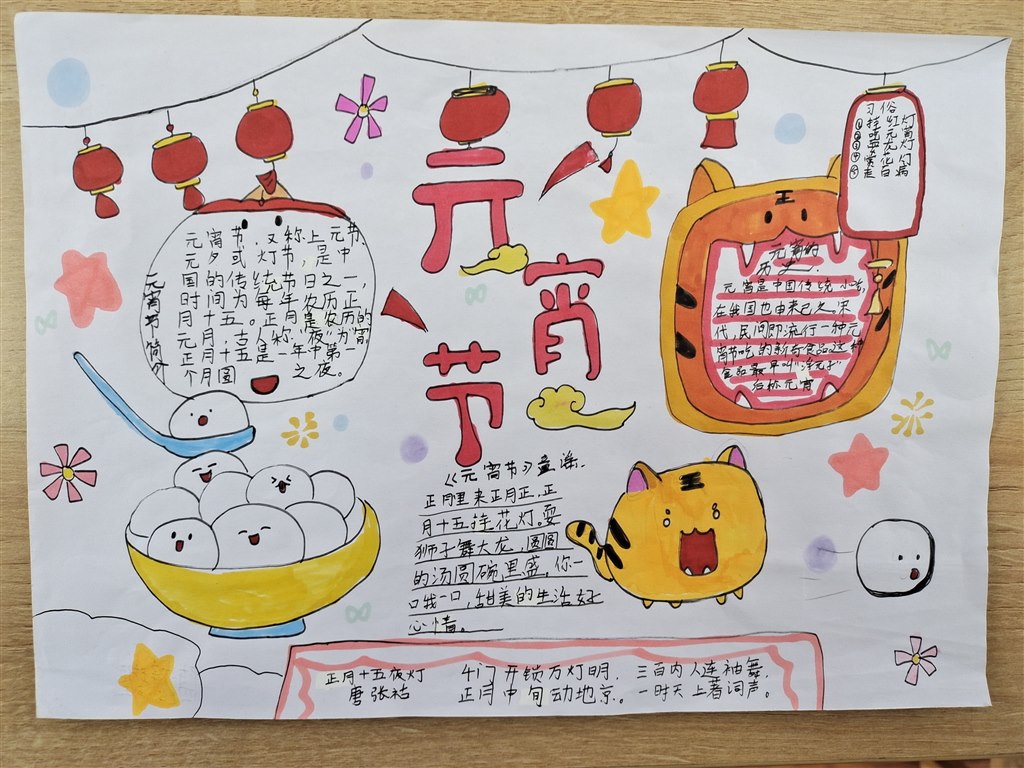 元宵节
元宵节简介
元宵节，又称上元节、
元夕或灯节，是中
国的传统节日之一，
时间为每年农历正
月十五。正月是农历的
元月，古人称"夜"为"宵"
正月十五是一年中第一
个月圆之夜。
习俗
①挂红灯
②吃元宵
③耍龙灯
④赏花
⑤走百病
元宵的
历史
元宵是中国传统小吃，
在我国也由来已久。宋
代，民间即流行一种元
宵节吃的新奇食品。这种
食品最早叫"浮元子"
后称元宵
《元宵节》童谣
正月里来正月正，正
月十五挂花灯。耍
狮子舞大龙，圆圆
的汤圆碗里盛，你一
口我一口，甜美的生活好
心情。
正月十五夜灯
唐 张祜
千门开锁万灯明，
正月中旬动地京。
三百内人连袖舞，
一时天上著词声。